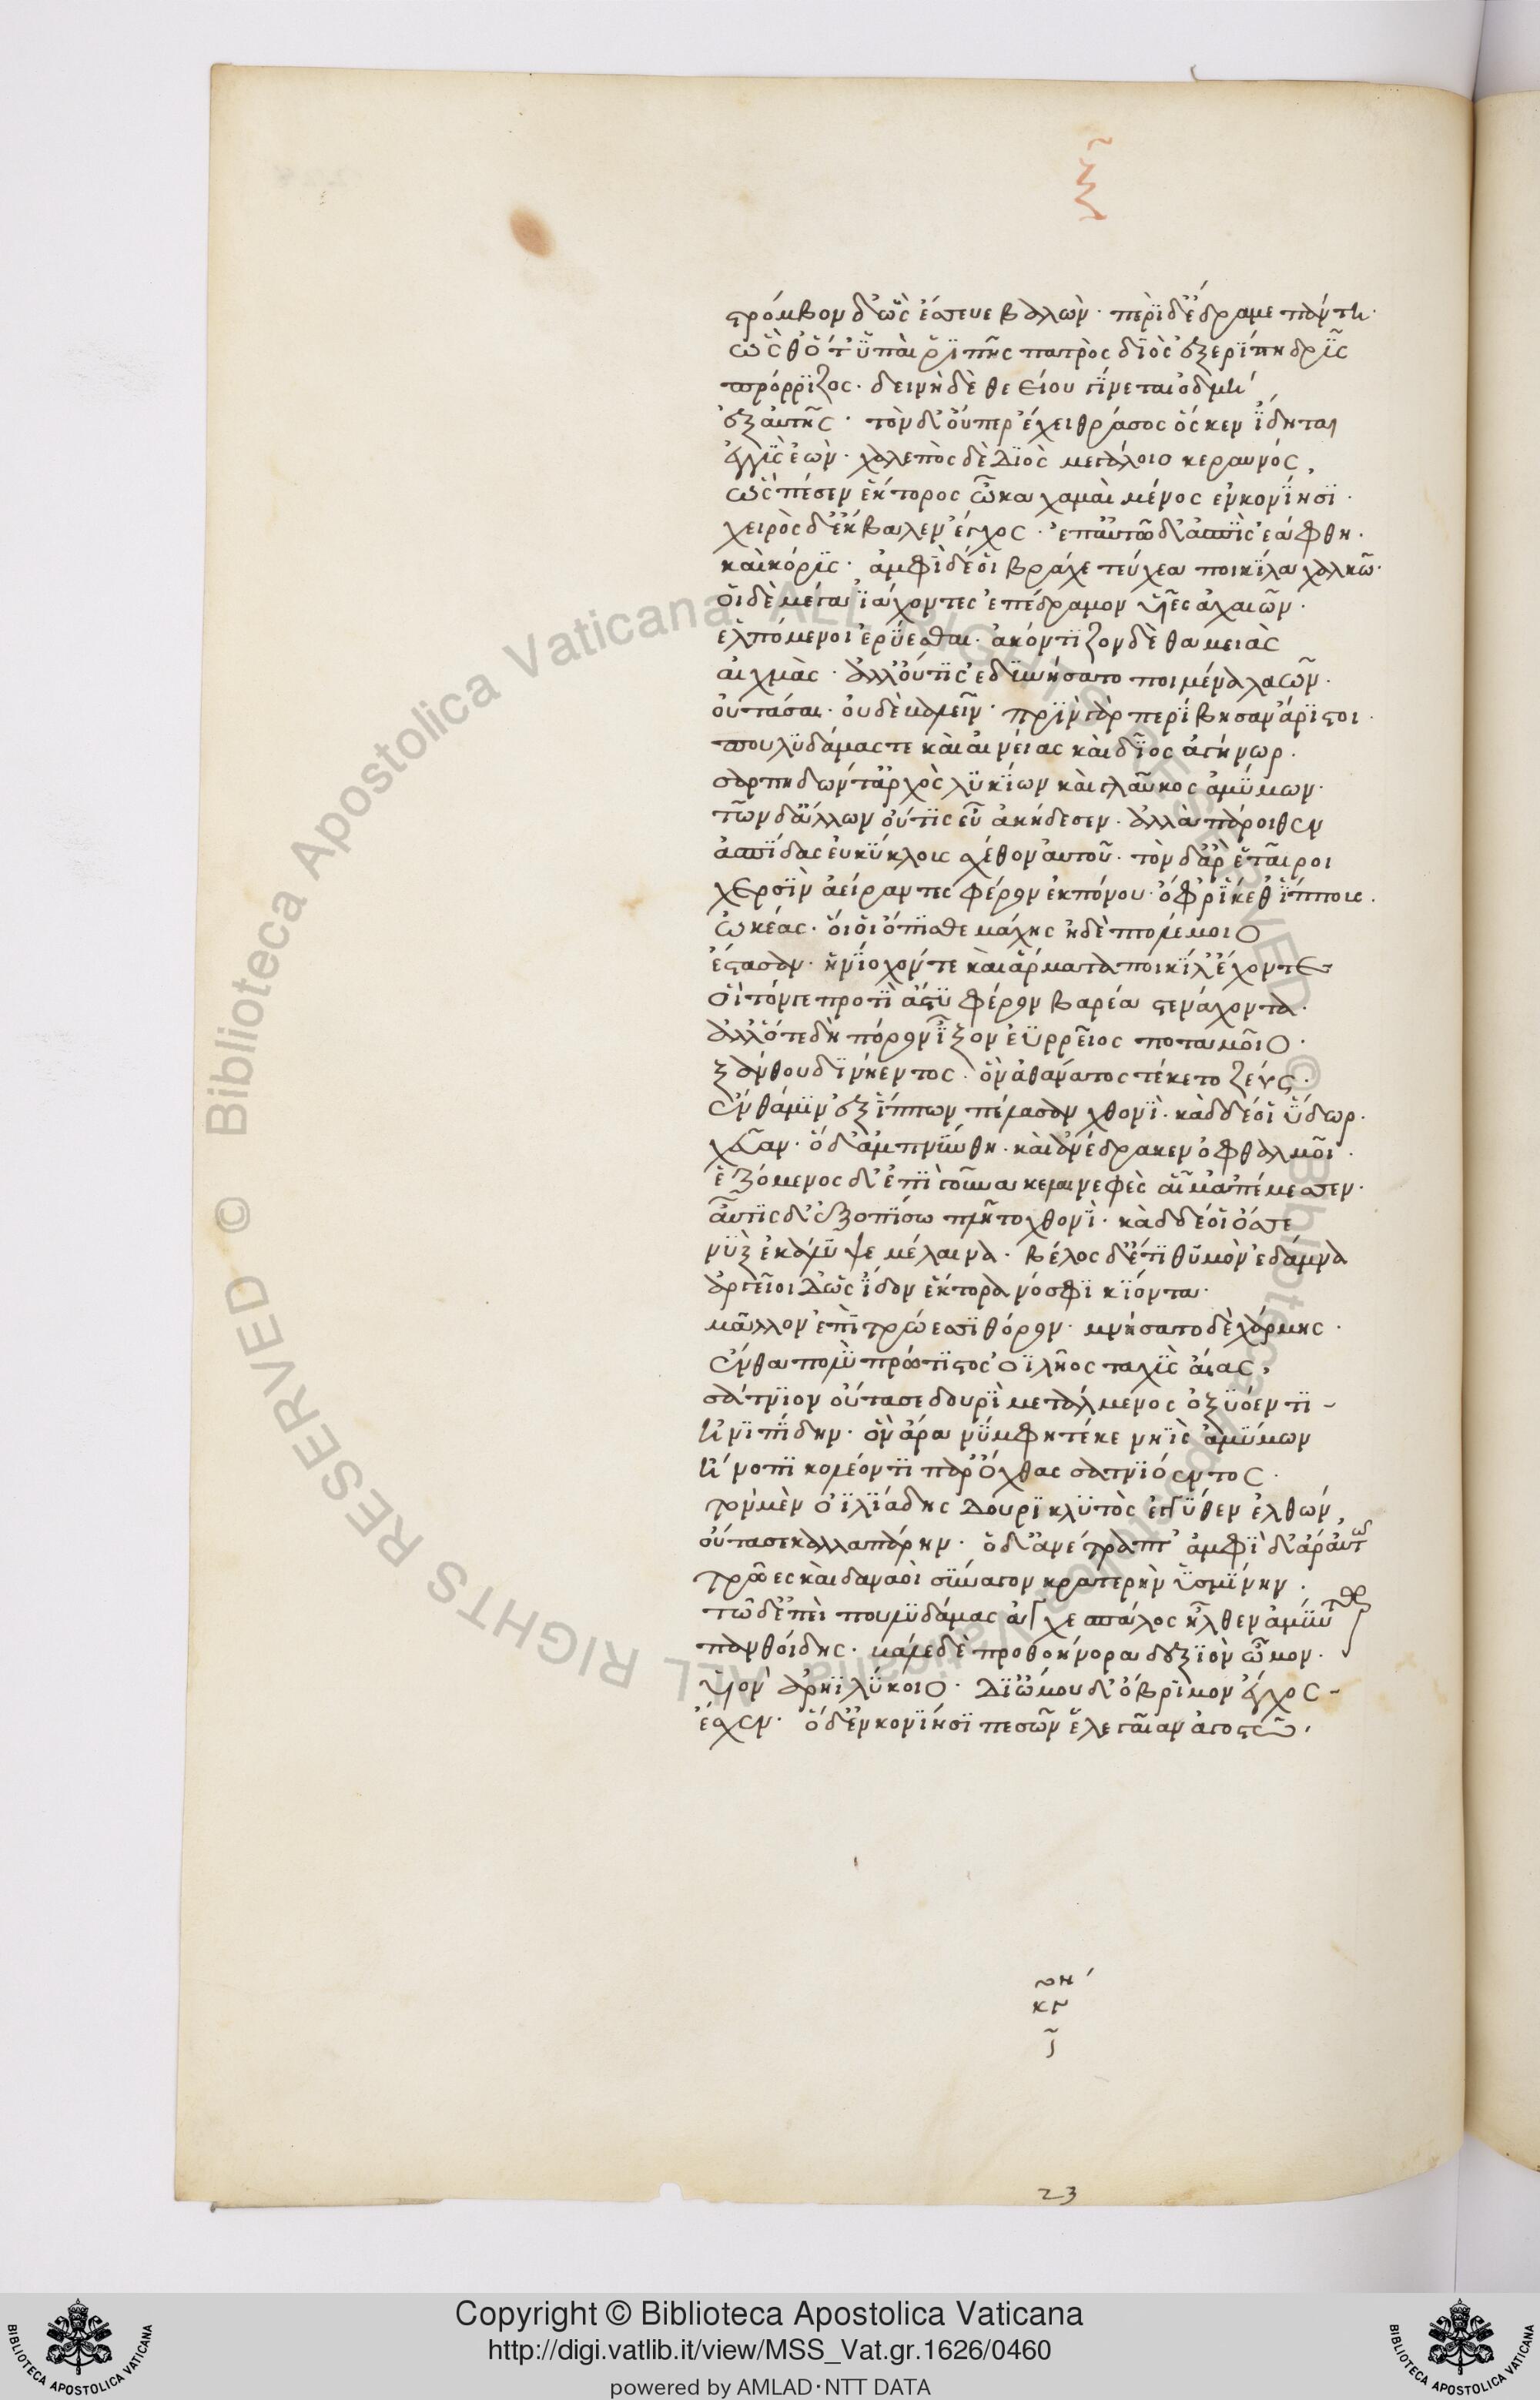 ξ̃
στρόμβον δ' ὣς ἔσσευε βαλών· περὶ δ' έδραμε πάντη·
ὡς δ' ὅθ' ὑπαὶ ῥιπῆς πατρὸς διὸς ἐξερίπη δρῦς
πρόρριζος· δεινὴ δὲ θεείου γίνεται ὀδμὴ
ἐξ αὐτῆς· τὸν δ' οὔπερ ἔχει θράσος ὅς κεν ἴδηται
ἐγγὺς ἐών· χαλεπὸς δὲ Διὸς μεγάλοιο κεραυνός,
ὣς πέσεν ἕκτορος ὦκα χαμαὶ μένος ἐν κονίησι·
χειρὸς δ' ἔκβαλεν ἔγχος· ἐπ' αὐτῶ δ' ἀσπὶς ἑάφθη·
καὶ κόρυς· ἀμφὶ δέ οἱ βράχε τεύχεα ποικίλα χαλκῶ·
οἱ δὲ μέγα ἰάχοντες ἐπέδραμον υἷες ἀχαιῶν·
ἐλπόμενοι ἐρύεσθαι· ἀκόντιζον δὲ θαμειὰς
αἰχμὰς· ἀλλ' οὔτις ἐδυνήσατο ποιμένα λαῶν·
οὐτάσαι· οὐδὲ βαλεῖν· πρὶν γὰρ περίβησαν ἄριστοι·
πουλυδάμας τε καὶ αἰνείας καὶ δῖος ἀγήνωρ·
σαρπηδών τ' ἀρχὸς λυκίων καὶ γλαῦκος ἀμύμων·
τῶν δ' ἄλλων οὔτις εὗ ἀκήδεσεν· ἀλλὰ πάροιθεν
ἀσπίδας εὐκύκλους σχέθον αὐτοῦ· τὸν δ' ἄρ' ἑταῖροι
χερσὶν ἀείραντες φέρον ἐκ πόνου· ὄφρ' ἵκεθ' ἵππους·
ὠκέας· οἵ οἱ ὄπισθε μάχης ἠδὲ πτολέμοιο
ἕστασαν· ἡνίοχόν τε καὶ ἅρματα ποικίλ' ἔχοντες
οἳ τόν γε προτὶ ἄστυ φέρον βαρέα στενάχοντα·
ἀλλ' ὅτε δὴ πόρον ἷξον ἐυρρεῖος ποταμοῖο·
ξάνθου δινήεντος· ὃν ἀθάνατος τέκετο ζεύς·
ἔνθά μιν ἐξ ἵππων πέλασαν χθονὶ· κὰδ δέ οἱ ὕδωρ·
χεῦαν· ὃ δ' ἀμπνύνθη· καὶ ἀνέδρακεν ὀφθαλμοῖσι·
ἑζόμενος δ' ἐπὶ γοῦνα κελαινεφὲς αἷμ' ἀπέμεσσεν·
αὖτις δ' ἐξοπίσω πλῆτο χθονὶ· κὰδ δέ οἱ ὄσσε
νὺξ ἐκάλυψε μέλαινα· βέλος δ' ἔτι θυμὸν ἐδάμνα
ἀργεῖοι Δ' ὡς ἴδον ἕκτορα νόσφι κιόντα·
μᾶλλον ἐπὶ τρώεσσι θόρον· μνήσαντο δὲ χάρμης·
ἔνθα πολὺ πρώτιστος ὀϊλῆος ταχὺς αἴας,
σάτνιον οὔτασε δουρὶ μετάλμενος ὀξυόεντι
ἠνοπίδην· ὃν ἄρα νύμφη τέκε νηῒς ἀμύμων
ἤνοπι βουκολέοντι παρ' ὄχθας σατνιόεντος·
τὸν μὲν ὀϊλιάδης Δουρικλυτὸς ἐγγύθεν ἐλθών,
οὔτασε κὰλλαπάρην· ὃ δ' ἀνετράπετ' ἀμφὶ δ' ἄρ' αὐτῶ
τρῶες καὶ δαναοὶ σύναγον κρατερὴν ὑσμίνην·
τῶ δ' ἐπὶ πουλυδάμας ἐγχέσπαλος ἦλθεν ἀμύντωρ
πανθοίδης· βάλε δὲ προθοήνορα δεξιὸν ὦμον·
υἱὸν ἀρηϊλύκοιο· Δι' ὤμου δ' ὄβριμον ἔγχος
ἔσχεν· ὃ δ' ἐν κονίησι πεσὼν ἕλε γαῖαν ἀγοστῶ,
23
© Biblioteca Apostolica Vaticana ALL RIGHTS RESERVED © Biblioteca Apostolica Vaticana ALL RIGHTS RESERVED
Copyright © Biblioteca Apostolica Vaticana
http://digi.vatlib.it/view/MSS_Vat.gr.1626/0460
powered by AMLAD·NTT DATA
BIBLIOTECA APOSTOLICA VATICANA
BIBLIOTECA APOSTOLICA VATICANA